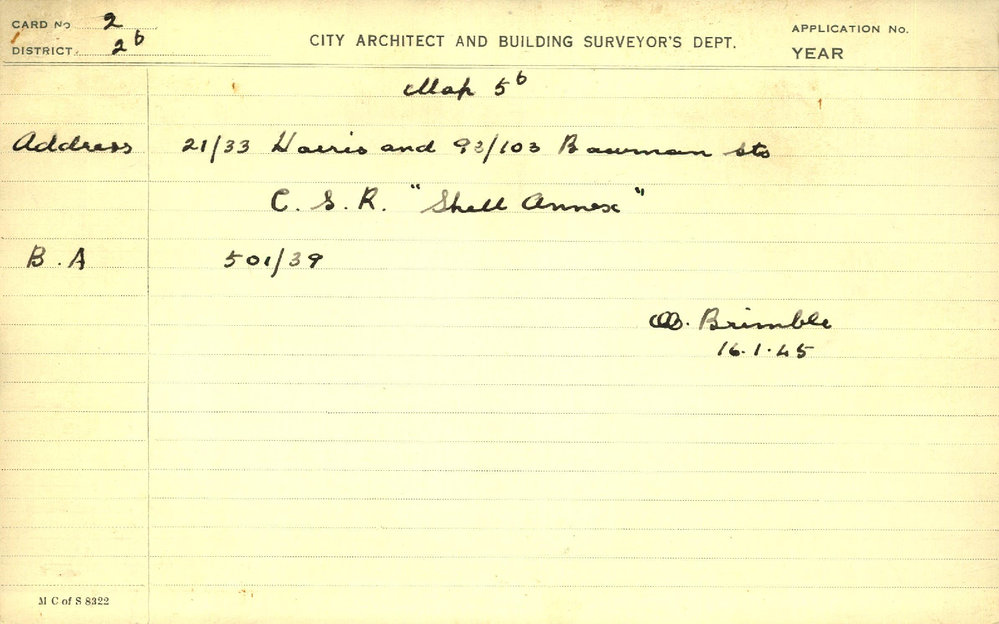 CARD No 2
DISTRICT. 2b
CITY ARCHITECT AND BUILDING SURVEYOR'S DEPT.
APPLICATION No.
YEAR
Map 5b
Address 21/33 Harris and 93/103 Bowman sts
C. S. R. "Shell Annex"
B. A 501/39
Brimble
16.1.45
M C of S 8322